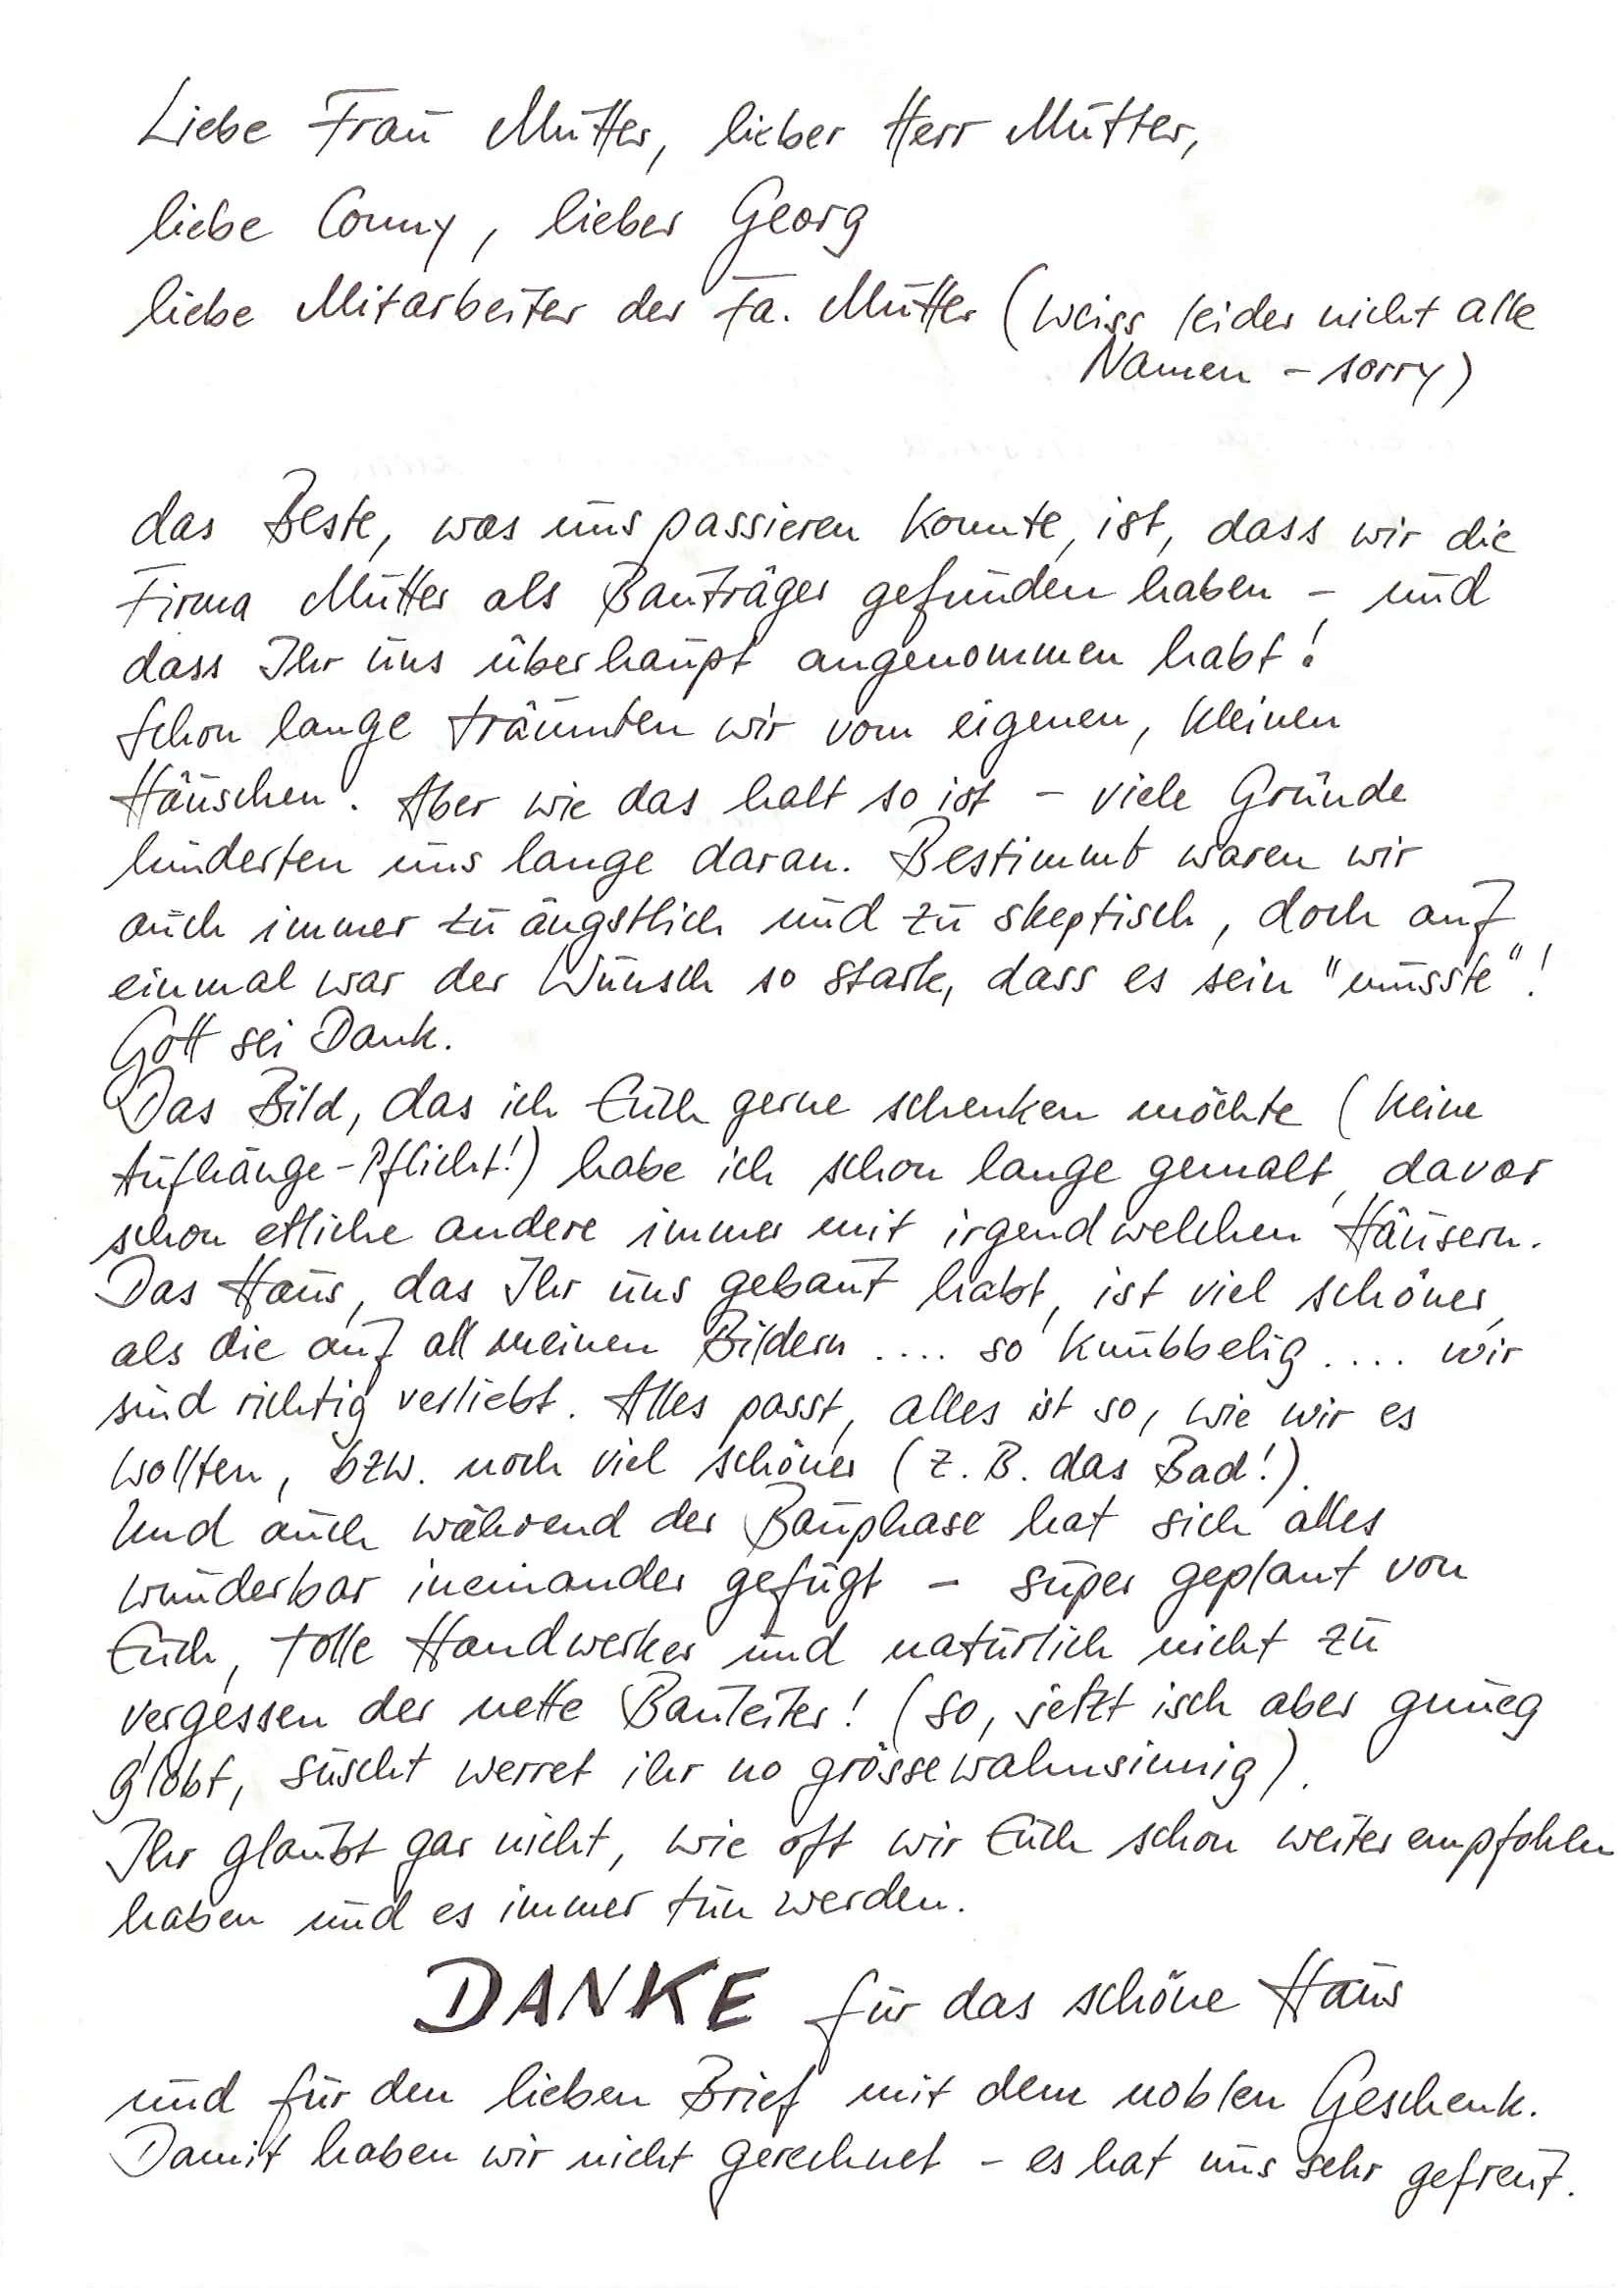 Liebe Frau Mutter, lieber Herr Mutter,
liebe Conny, lieber Georg
liebe Mitarbeiter der Fa. Mutter (weiss leider nicht alle
Namen - sorry)
das Beste, was uns passieren konnte, ist, dass wir die
Firma Mutter als Bauträger gefunden haben - und
dass Ihr uns überhaupt angenommen habt!
Schon lange träumten wir vom eigenen, kleinen
Häuschen. Aber wie das halt so ist - viele Gründe
hinderten uns lange daran. Bestimmt waren wir
auch immer zu ängstlich und zu skeptisch, doch auf
einmal war der Wunsch so stark, dass es sein "musste"!
Gott sei Dank.
Das Bild, das ich Euch gerne schenken möchte (keine
Aufhänge-Pflicht!) habe ich schon lange gemalt, davor
schon etliche andere immer mit irgendwelchen Häusern.
Das Haus, das Ihr uns gebaut habt, ist viel schöner,
als die auf all meinen Bildern .... so knubbelig .... wir
sind richtig verliebt. Alles passt, alles ist so, wie wir es
wollten, bzw. noch viel schöner (z.B. das Bad!).
Und auch während der Bauphase hat sich alles
wunderbar ineinander gefügt - super geplant von
Euch, tolle Handwerker und natürlich nicht zu
vergessen der nette Bauleiter! (so, jetzt isch aber gnueg
g'lobt, suscht werret ihr no grössewahnsinnig).
Ihr glaubt gar nicht, wie oft wir Euch schon weiterempfohlen
haben und es immer tun werden.
DANKE für das schöne Haus
und für den lieben Brief mit dem noblen Geschenk.
Damit haben wir nicht gerechnet - es hat uns sehr gefreut.